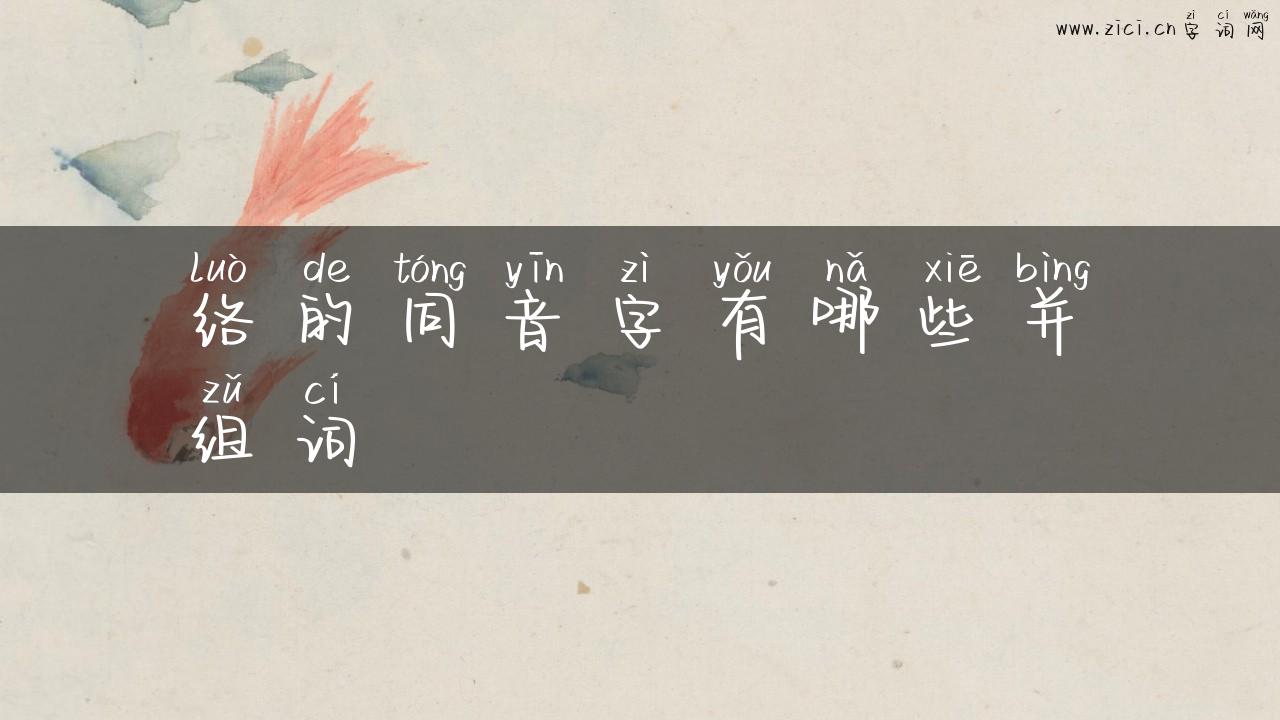 zì cí wǎng
www.zici.cn 字 词 网
luò de tóng yīn zì yǒu nǎ xiē bìng
络 的 同 音 字 有 哪 些 并
zǔ cí
组 词